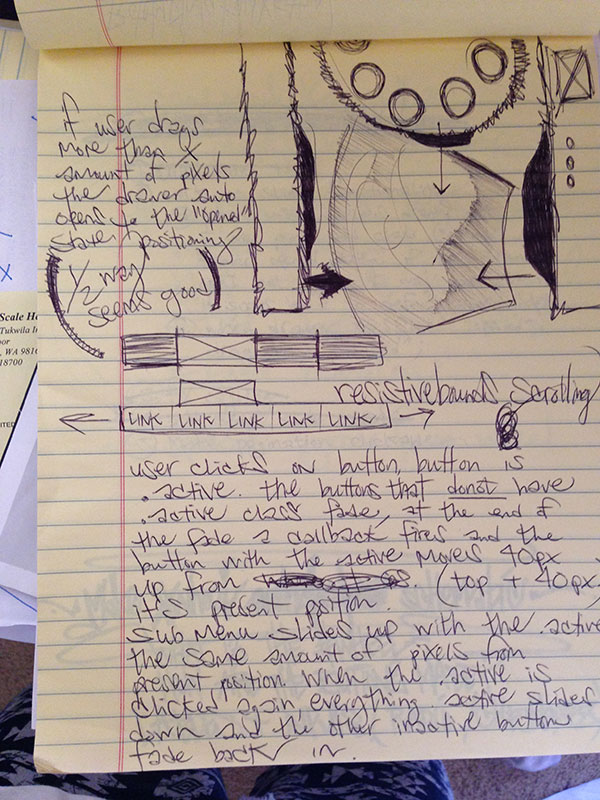 if user drags
more than X
amount of pixels
the drawer auto
opens to the "opened"
state / positioning
1/2 way
seems good
resistive bounds scrolling
LINK LINK LINK LINK LINK
user clicks on button, button is
.active. the buttons that do not have
.active class fade, at the end of
the fade a callback fires and the
button with the .active moves 40px
up from (top + 40px
it's present position.
sub menu slides up with the .active
the same amount of pixels from
present position. when the .active is
clicked again, everything .active slides
down and the other inactive buttons
fade back in.
Scale Ho
Tukwila In
oor
, WA 9816
18700
ITED
X